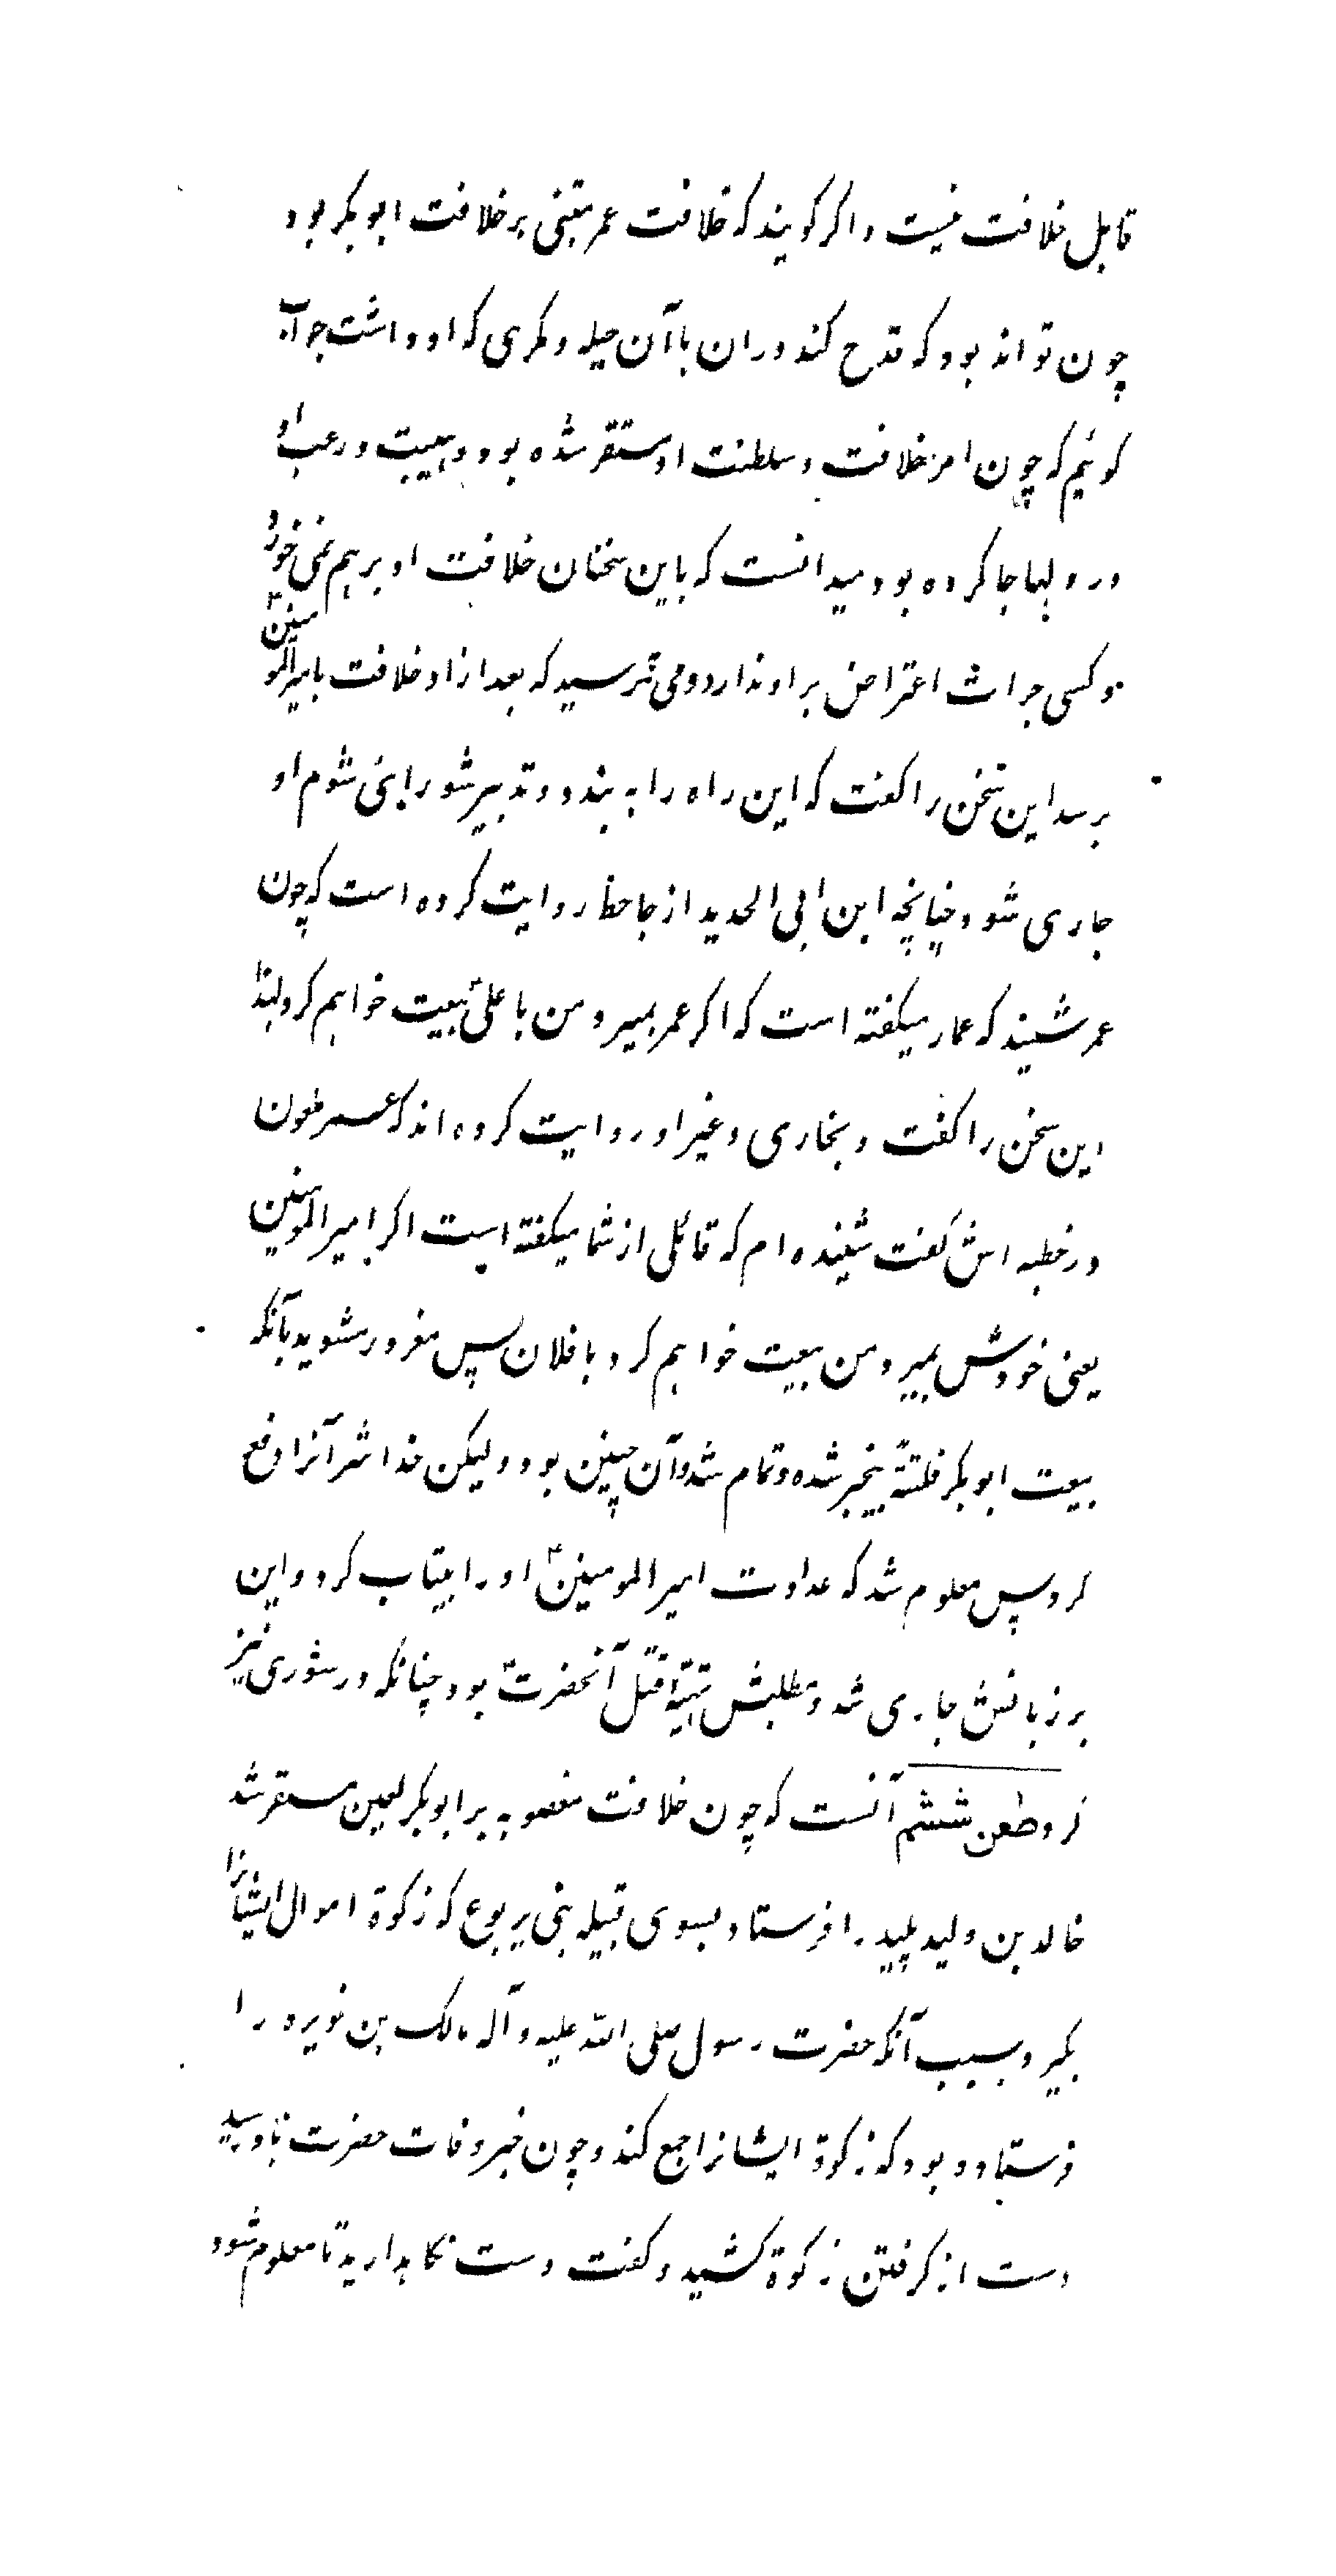 قابل خلافت نیست و اگر گویند که خلافت عمر مبتنی بر خلافت ابوبکر بود
چون تواند بود که قدح کند دران با آن حیله و مکری که او داشت جواب
گوئیم که چون امر خلافت و سلطنت او مستقر شده بود و هیبت و رعب او
در دلها جا کرده بود میدانست که باین سخنان خلافت او برهم نمی خورد
و کسی جرات اعتراض بر او ندارد و می ترسید که بعد از او خلافت بامیرالمومنین ع
برسد این سخن را گفت که این راه را به بندد و تدبیر شورایی شوم او
جاری شود چنانچه ابن ابی الحدید از جاحظ روایت کرده است که چون
عمر شنید که عمار میگفته است که اگر عمر بمیرد من با علی ع بیعت خواهم کرد لهذا
این سخن را گفت و بخاری و غیر او روایت کرده اند که عمر ملعون
در خطبه اش گفت شنیده ام که قائلی از شما میگفته است اگر امیرالمومنین
یعنی خودش بمیرد من بیعت خواهم کرد با فلان پس مغرور مشوید بآنکه
بیعت ابوبکر فلتةً بیخبر شده و تمام شد و آن چنین بود و لیکن خدا شر آنرا دفع
کرد پس معلوم شد که عداوت امیرالمومنین ع او را بیتاب کرد و این
بر زبانش جاری شد و مطلبش تهیه قتل آنحضرت بود چنانکه در شوری نیز
کرد طعن ششم آنست که چون خلافت مغصوبه بر ابوبکر لعین مستقر شد
خالد بن ولید پلید را فرستاد بسوی قبیله بنی یربوع که زکوة اموال ایشانرا
بگیرد بسبب آنکه حضرت رسول صلی الله علیه و آله مالک بن نویره را
فرستاده بود که زکوة ایشانرا جمع کند و چون خبر وفات حضرت باو رسید
دست از گرفتن زکوة کشید و گفت دست نگاهدارید تا معلوم شود